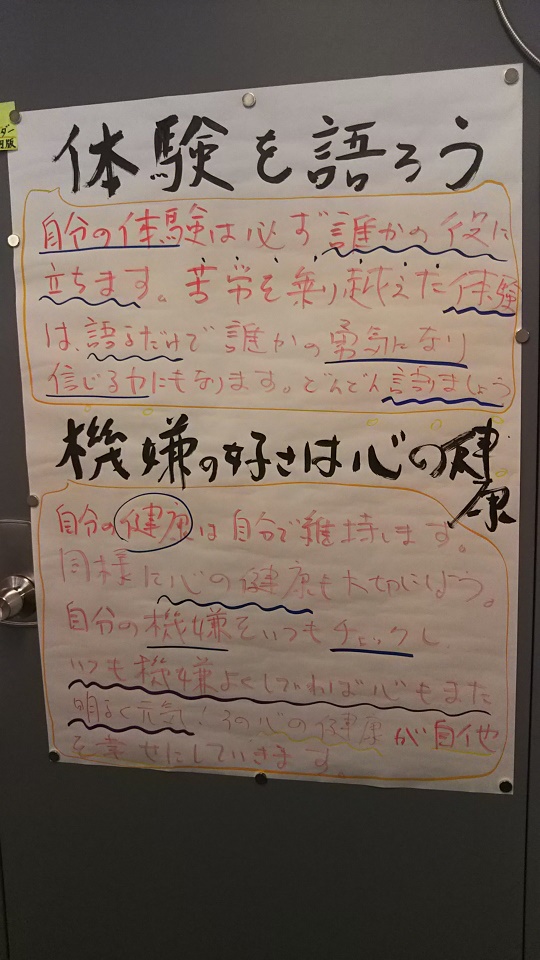 体験を語ろう
自分の体験は必ず誰かの役に
立ちます。苦労を乗り越えた体験
は、語るだけで誰かの勇気になり
信じる力にもなります。どんどん語りましょう
機嫌の好さは心の健
康
自分の健康は自分で維持します。
同様に心の健康も大切にしよう。
自分の機嫌をいつもチェックし
いつも機嫌よくしていれば心もまた
明るく元気！その心の健康が自他
を幸せにしていきます。
ダー
用版